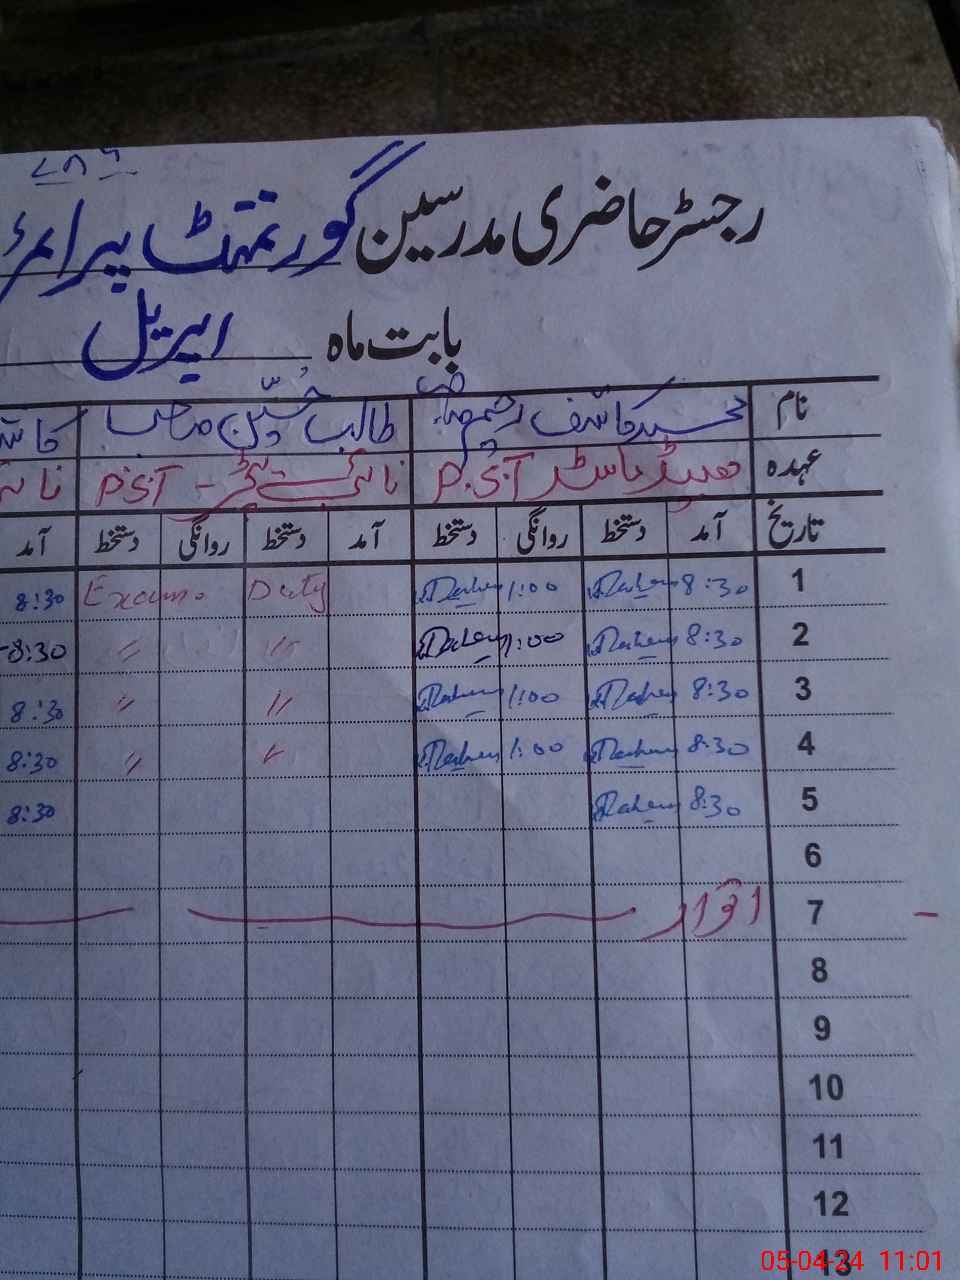 ۷۸۶
رجسٹر حاضری مدرسین گورنمنٹ پرائمر
بابت ماہ اپریل
نام محمد کاشف رحیم صاحب طالب حسین صاحب
عہدہ ہیڈ ماسٹر P.S.T نائب ٹیچر - P.S.T
تاریخ آمد دستخط روانگی دستخط آمد دستخط روانگی دستخط آمد
1 8:30 1:00 Duty Exam. 8:30
2 8:30 1:00 〃 〃 8:30
3 8:30 1:00 〃 〃 8:30
4 8:30 1:00 〃 〃 8:30
5 8:30 8:30
6
7 اتوار
8
9
10
11
12
13
05-04-24 11:01